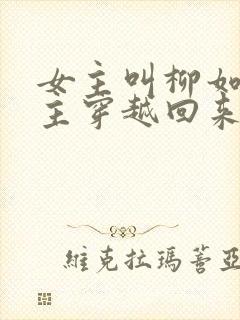 女主叫柳如
主穿越回来
維克拉瑪蓍亞